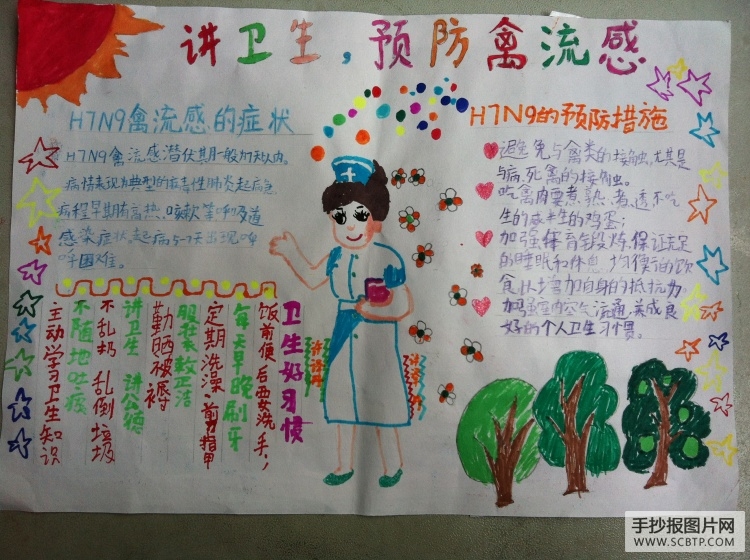 讲卫生，预防禽流感
H7N9禽流感的症状
H7N9禽流感潜伏期一般为7天以内。
病情表现为典型的病毒性肺炎起病急
病程早期有高热、咳嗽等呼吸道
感染症状。起病5-7天出现呼
呼困难。
H7N9的预防措施
避免与禽类的接触，尤其是
与病、死禽的接触。
吃禽肉要煮熟、煮透不吃
生的或半生的鸡蛋；
加强体育锻炼，保证充足
的睡眠和休息，均衡的饮
食以增加自身的抵抗力
加强室内空气流通，养成良
好的个人卫生习惯。
卫生好习惯
饭前便后要洗手，
每天早晚刷牙
定期洗澡、剪指甲
服装衣整洁
勤晒被褥
讲卫生 讲公德
不乱扔 乱倒垃圾
不随地吐痰
主动学习卫生知识
手抄报图片网
WWW.SCBTP.COM